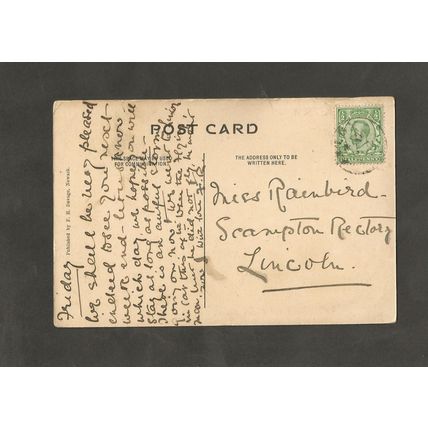 POST CARD
THIS SPACE MAY BE USED
FOR COMMUNICATION.
THE ADDRESS ONLY TO BE
WRITTEN HERE.
Published by F. H. Savage, Newark.
Friday
We shall be very pleased
indeed to see you next
week-end - let us know
which day we hope you will
stay as long as possible
There is an awful storm
going on now. We were
in
did not
Miss Rainbird.
Scampton Rectory
Lincoln.